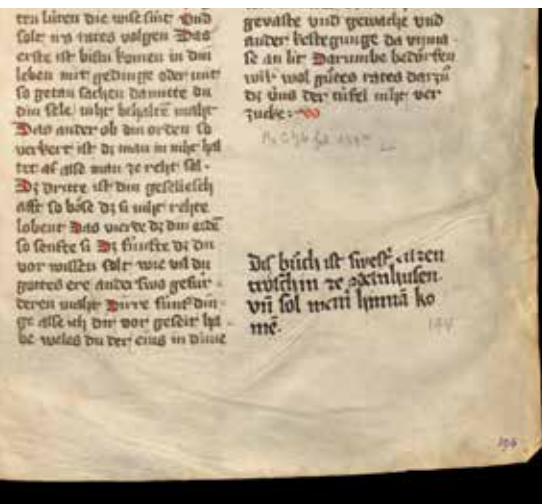 ten lúten die wise sint Vnd
solt irs rates volgen Das
erste ist bistu komen in din
leben mit gedinge oder mit
so getan sachen da mitte du
din sele niht behaltē maht
Das ander ob din orden so
verkert ist dz man in niht hal
tet als man ze reht sol
Dz dritte ist din geselleschaft
so böse dz si niht rehte
lobent Das vierde dz din
so senfte si Dz fúnfte dz du
vor wissen solt wie vil du
gottes ere anderswa gefúr
deren maht Dirre fúnf din
ge als ich dir vor geseit ha
be weles du der eins in dime
gevaste vnd gewache vnd
ander kestegunge da
an lit Darumbe bedörften
wir wol gůtes rates darzů
dz vns der túfel niht ver
zucke
Dis bůch ist swest
ze
vn̄ sol meni ko
mē
144